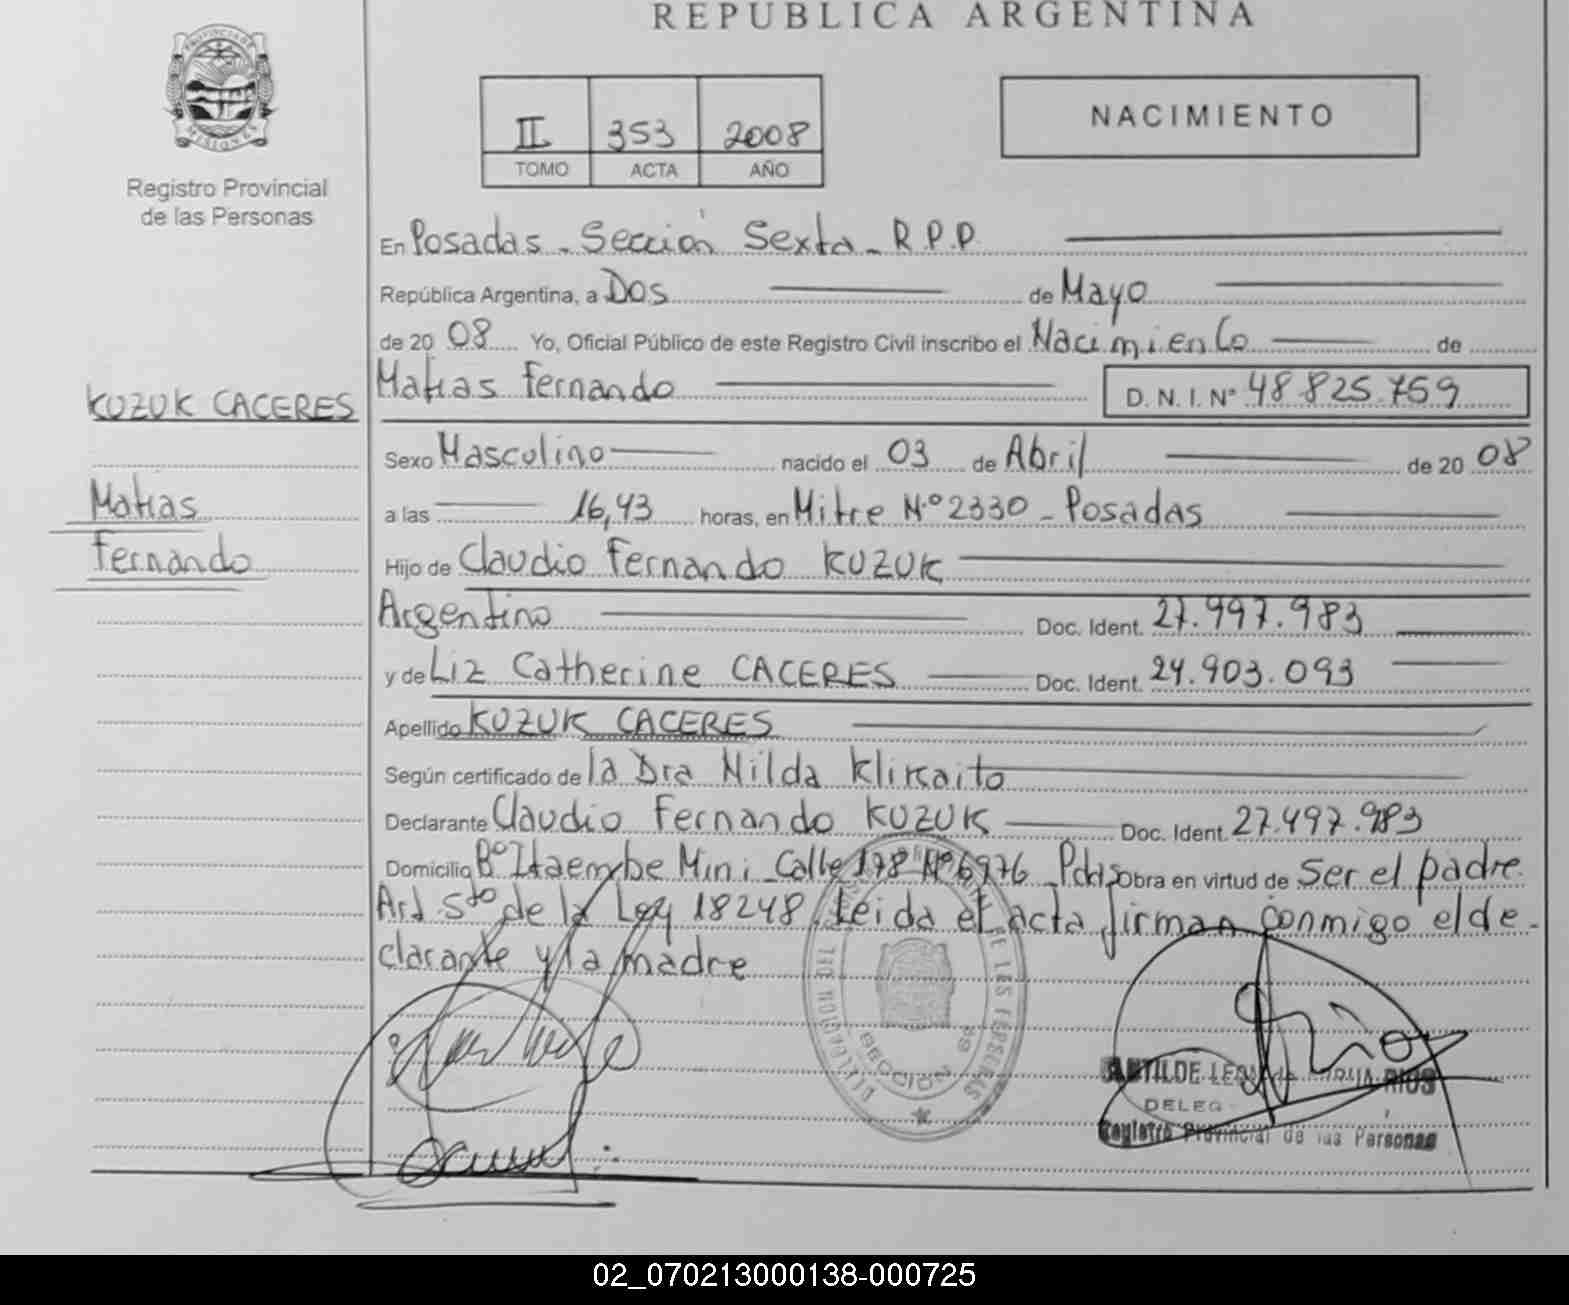 REPUBLICA ARGENTINA
PROVINCIA DE
MISIONES
Registro Provincial
de las Personas
II 353 2008
TOMO ACTA AÑO
NACIMIENTO
En Posadas - Sección Sexta - R.P.P.
República Argentina, a Dos de Mayo
de 20 08 Yo, Oficial Público de este Registro Civil inscribo el Nacimiento de
Matias Fernando D. N. I. N° 48.825.759
KUZUK CACERES
Matias
Fernando
Sexo Masculino nacido el 03 de Abril de 20 08
a las 16,43 horas, en Mitre N.º 2330 - Posadas
Hijo de Claudio Fernando KUZUK
Argentino Doc. Ident. 27.497.983
y de Liz Catherine CACERES Doc. Ident. 24.903.093
Apellido KUZUK CACERES
Según certificado de la Dra Nilda
Declarante Claudio Fernando KUZUK Doc. Ident. 27.497.983
Domicilio Bº Itaembe Mini - Calle 178 Nº 6976 - Pdas Obra en virtud de ser el padre.
Art. 5to de la Ley 18248. Leida el acta firman conmigo el de-
clarante y la madre
DE LAS PERSONAS
SECCION 6ª
RIOS
DELEG
Registro Provincial de las Personas
02_070213000138-000725